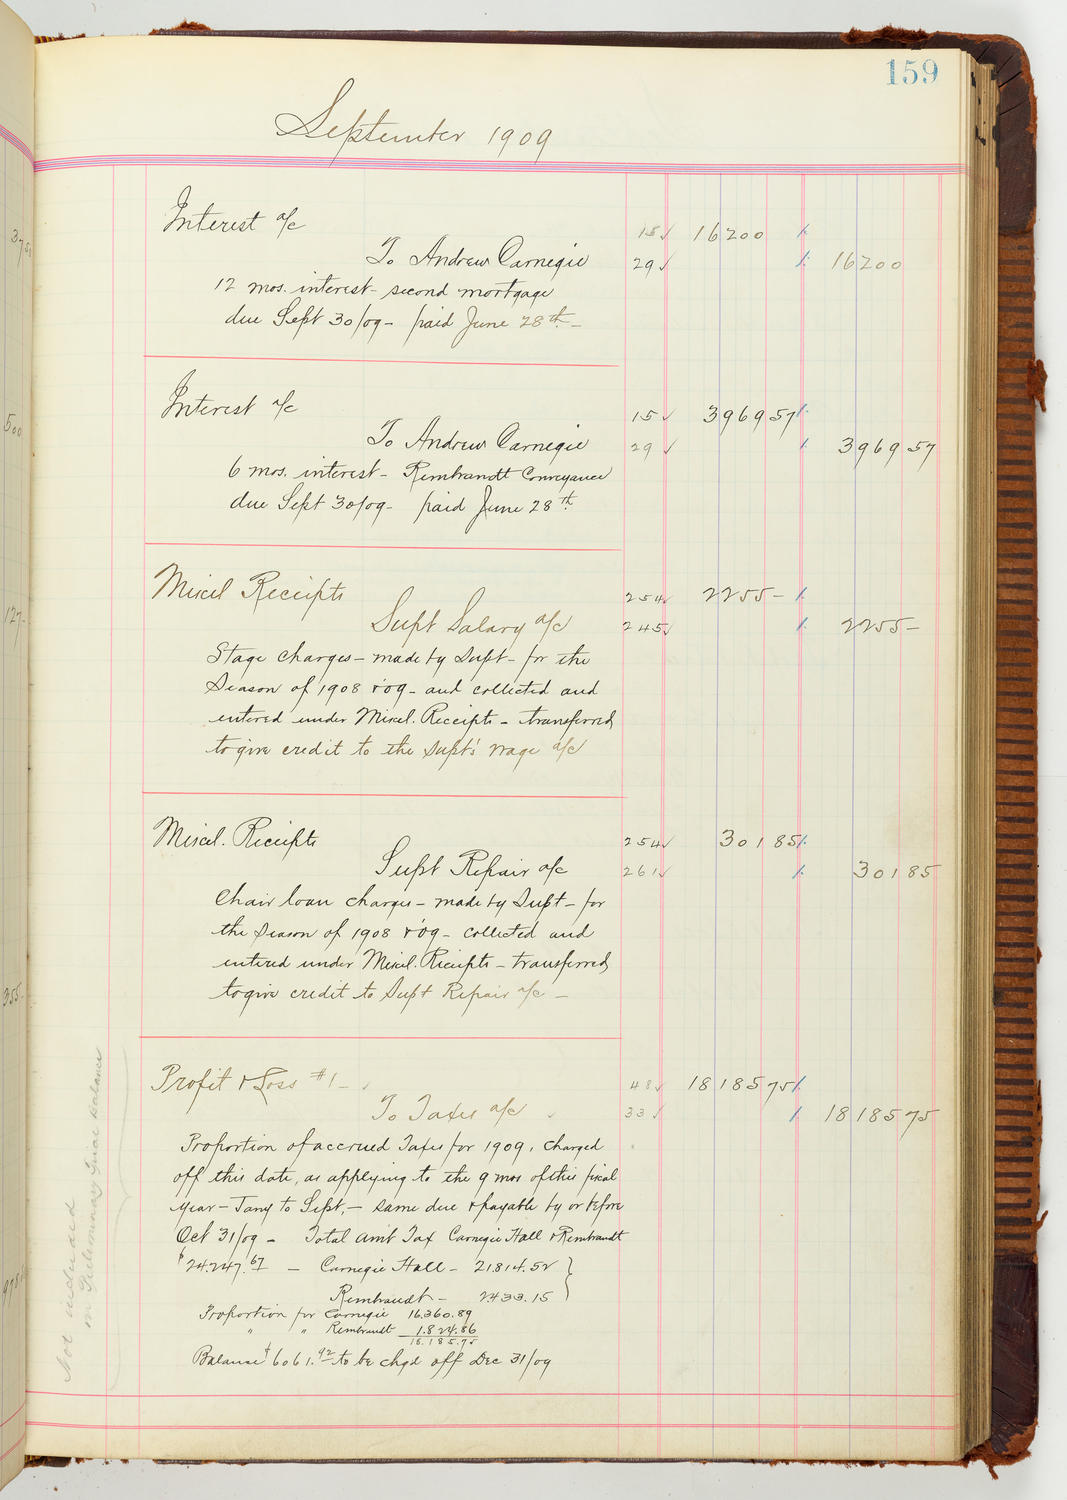 159
September 1909
Interest a/c 15 ✓ 16200
To Andrew Carnegie 29 ✓ 16200
12 mos. interest - second mortgage
due Sept 30/09 - paid June 28th -
Interest a/c 15 ✓ 3969 57
To Andrew Carnegie 29 ✓ 3969 57
6 mos. interest - Rembrandt Conveyance
due Sept 30/09 - paid June 28th.
Miscel Receipts 254 ✓ 2255 -
Supt Salary a/c 245 ✓ 2255 -
Stage charges - made by Supt - for the
Season of 1908 & '09 - and collected and
entered under Miscel. Receipts - transferred
to give credit to the Supt's wage a/c
Miscel. Receipts 254 ✓ 301 85
Supt Repair a/c 261 ✓ 301 85
Chair loan charges - made by Supt - for
the Season of 1908 & '09 - collected and
entered under Miscel. Receipts - transferred
to give credit to Supt Repair a/c -
Profit & Loss #1 - ✓ 48 ✓ 18185 75
To Taxes a/c ✓ 33 ✓ 18185 75
Proportion of accrued Taxes for 1909, charged
off this date, as applying to the 9 mos of this fiscal
year - Jany to Sept, - same due & payable by or before
Oct 31/09 - Total amt Tax Carnegie Hall & Rembrandt
$24.247.67 - Carnegie Hall - 21.814.52
Rembrandt - 2433.15
Proportion for Carnegie 16.360.89
" " Rembrandt 1.824.86
18.185.75
Balance $6061.92 to be chgd off Dec 31/09
Not included
in Preliminary Trial Balance
37 50
500
127 -
355 -